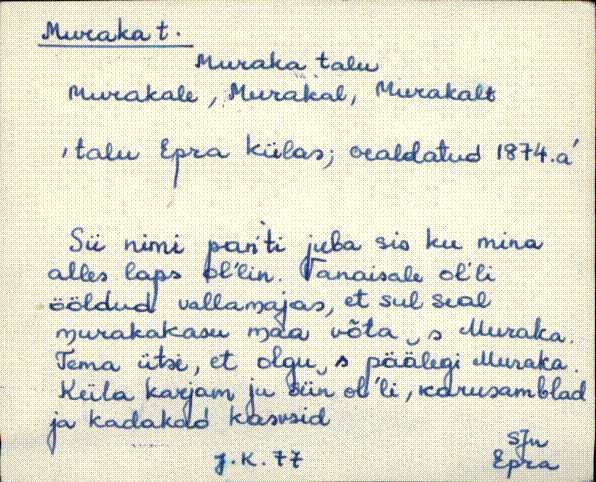 Muraka t.
Muraka talu
Murakale, Murakal, Murakalt
'talu Epra külas; ocaldatud 1874.a'
Sii nimi pan'ti juba sis ku mina
alles laps ol'lin. Vanaisale ol'li
ööldud vallamajas, et sul seal
murakakasu maa võta, s Muraka.
Tema ütsi, et olgu, s päälegi Muraka.
Küla karjam ju siin ol'li, karusamblad
ja kadakad kasvsid
SJn
J.K. 77
Epra